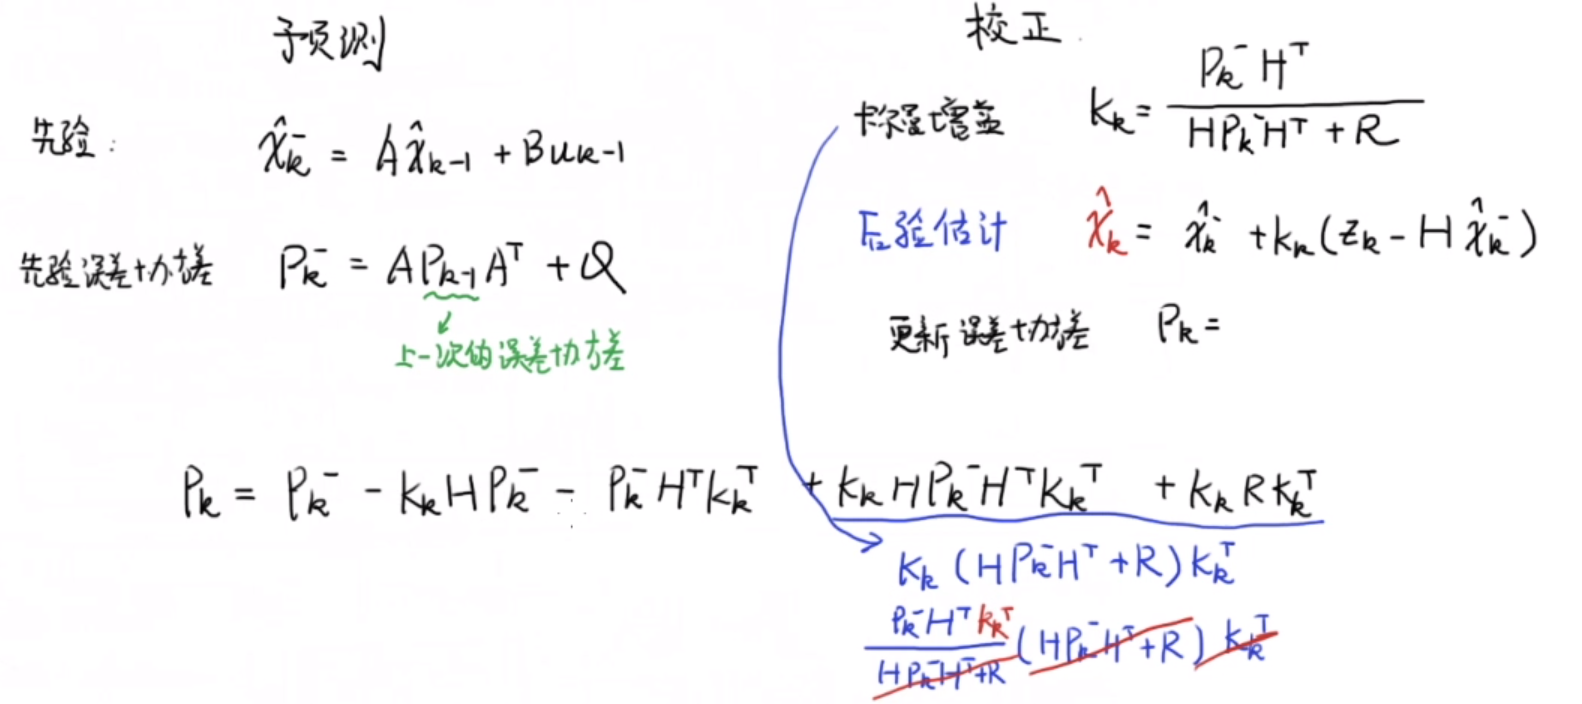 预测
先验：
x̂ₖ⁻ = Ax̂ₖ₋₁ + Buₖ₋₁
先验误差协方差
Pₖ⁻ = APₖ₋₁Aᵀ + Q
上一次的误差协方差
校正
卡尔曼增益
Kₖ = Pₖ⁻Hᵀ / (HPₖ⁻Hᵀ + R)
后验估计
x̂ₖ = x̂ₖ⁻ + Kₖ(zₖ - Hx̂ₖ⁻)
更新误差协方差
Pₖ =
Pₖ = Pₖ⁻ - KₖHPₖ⁻ - Pₖ⁻HᵀKₖᵀ + KₖHPₖ⁻HᵀKₖᵀ + KₖRKₖᵀ
Kₖ(HPₖ⁻Hᵀ + R)Kₖᵀ
Pₖ⁻HᵀKₖᵀ / HPₖ⁻Hᵀ+R (HPₖ⁻Hᵀ+R) Kₖᵀ